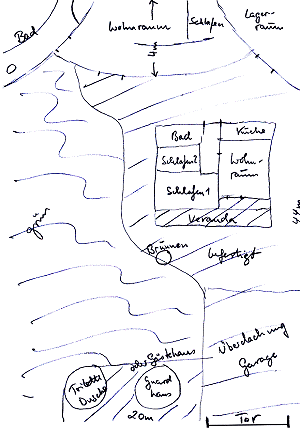 Bad
Wohnraum
Schlafen
Lager-
raum
4m
Bad
Küche
Schlafen 2
Wohn-
raum
Schlafen 1
Veranda
44m
grün
Brunnen
befestigt
Überdachung
Garage
oder Gästehaus
Toilette
Dusche
Guard
haus
20m
Tor